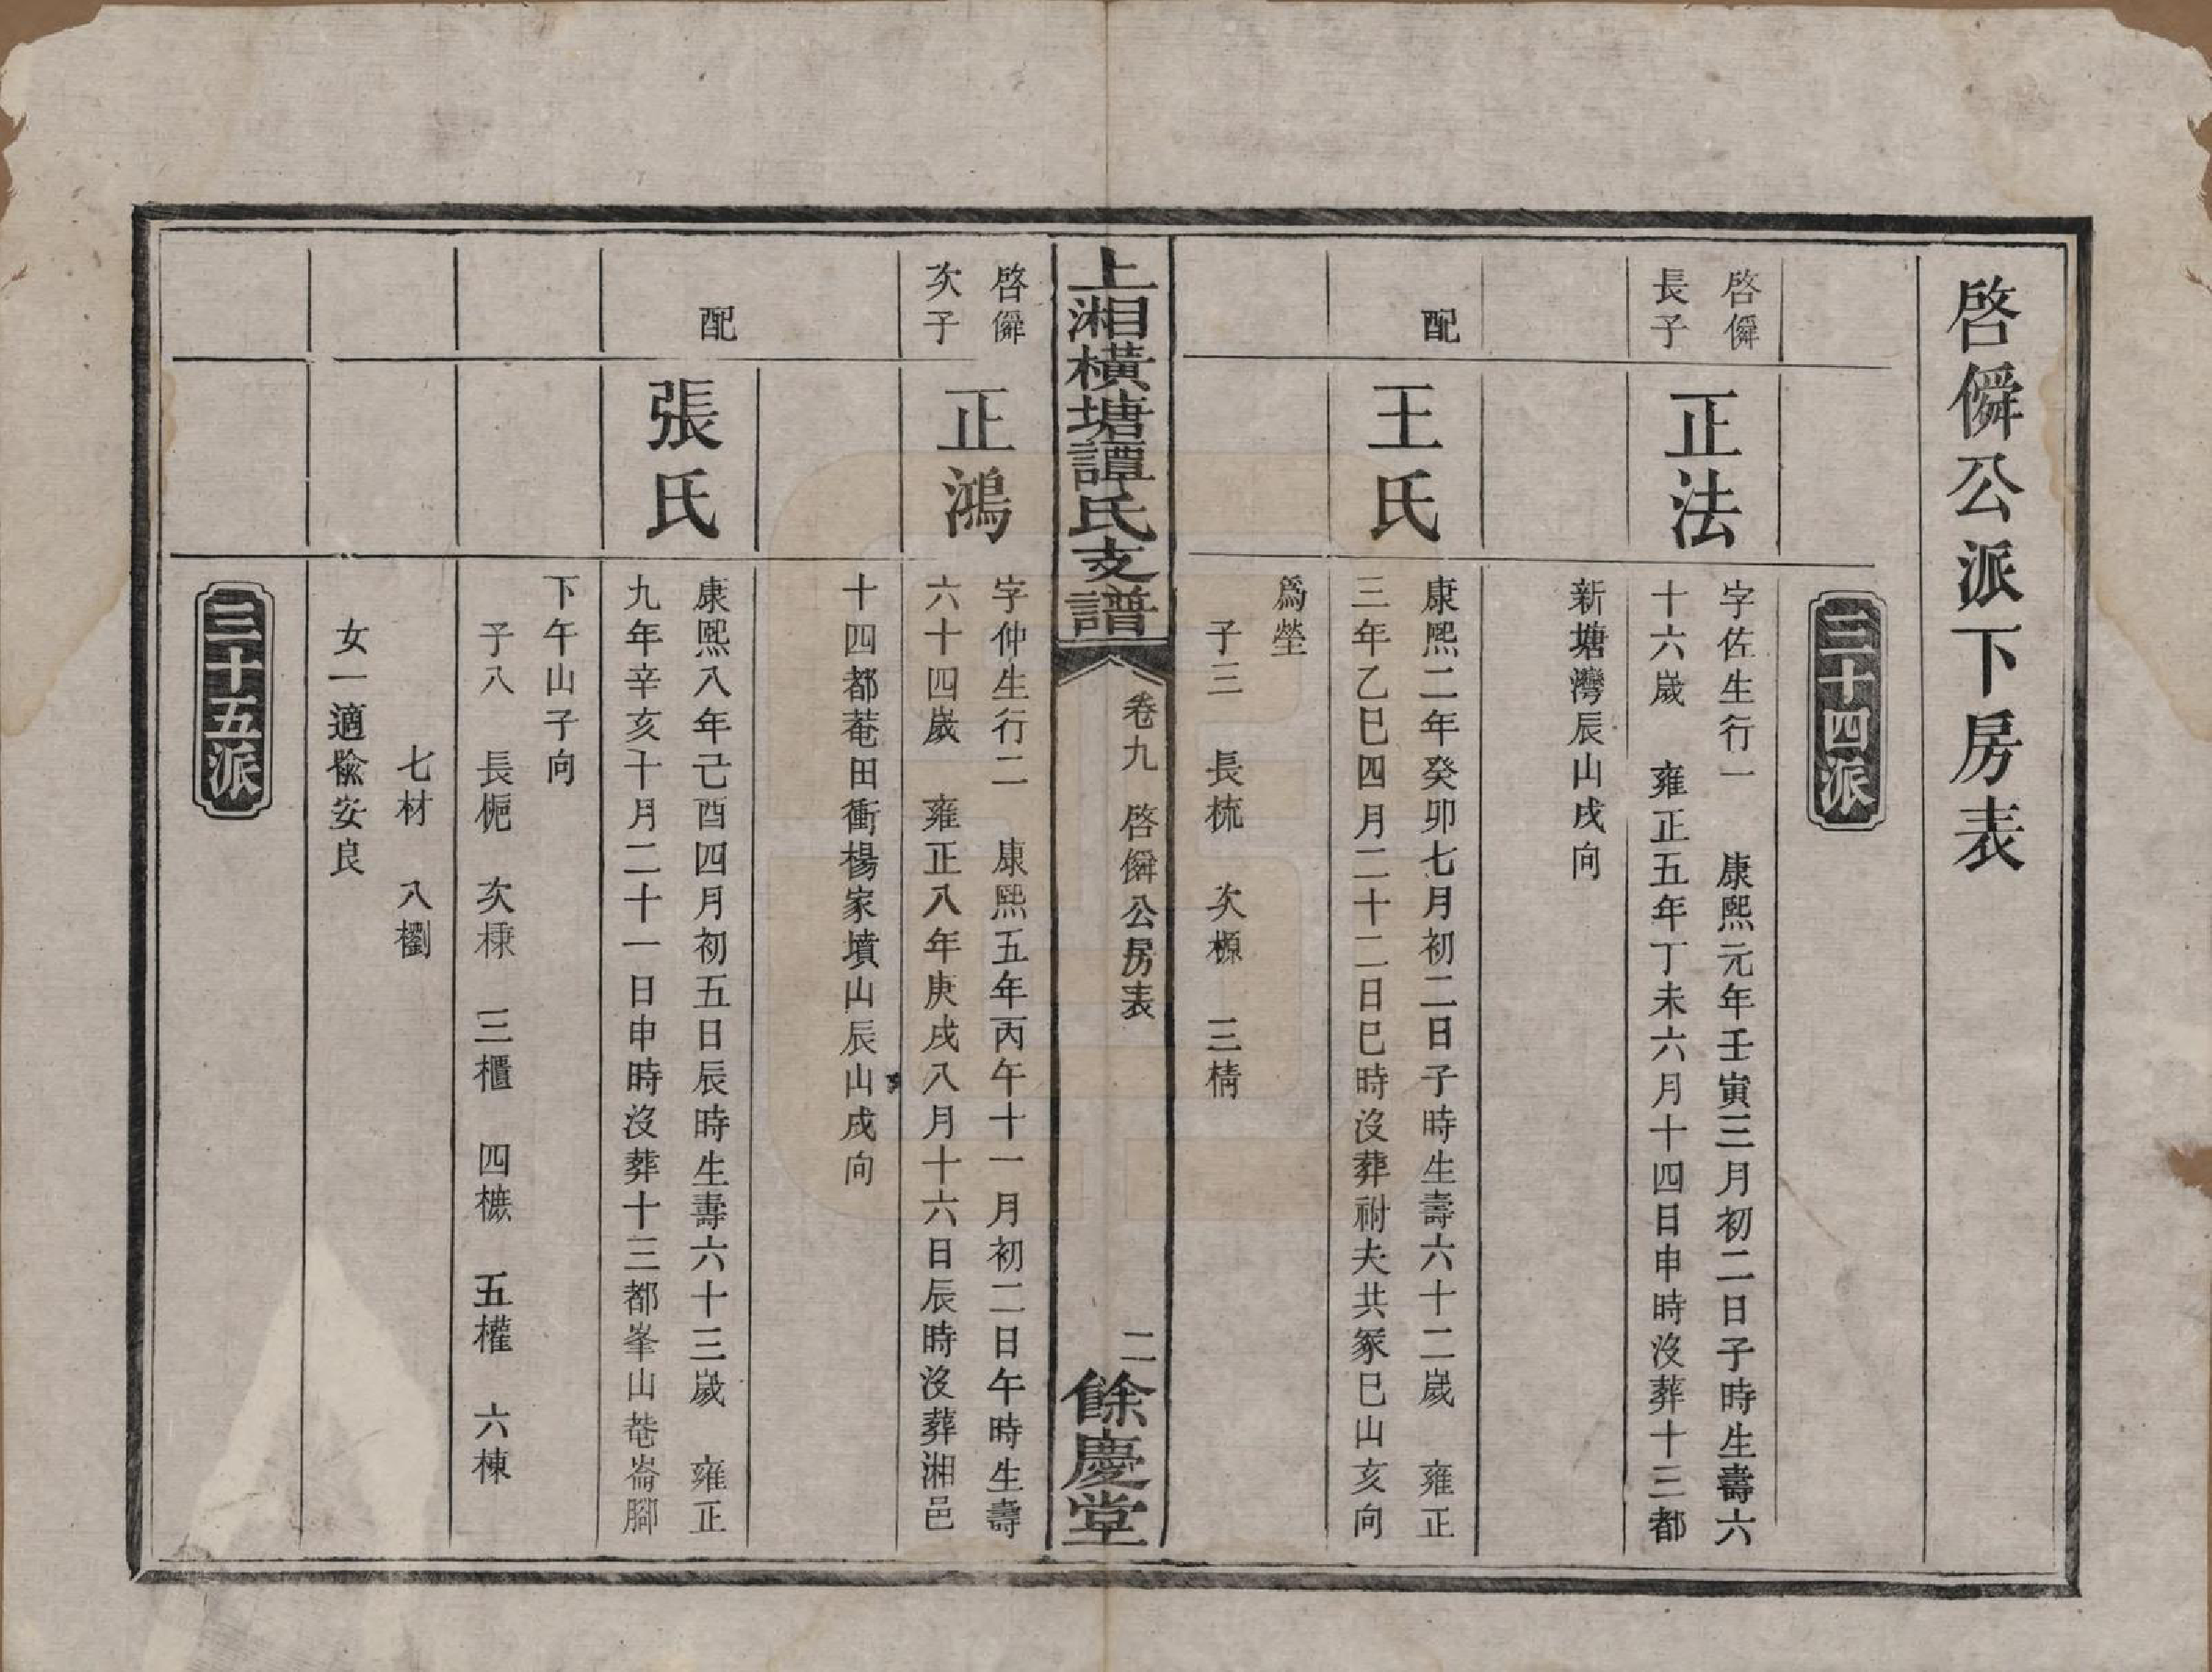 啓僢公派下房表
三十四派
啓僢
長子
正法
字佐生行一 康熙元年壬寅三月初二日子時生壽六
十六歲 雍正五年丁未六月十四日申時沒葬十三都
新塘灣辰山戌向
配
王氏
康熙二年癸卯七月初二日子時生壽六十二歲 雍正
三年乙巳四月二十二日巳時沒葬祔夫共冢巳山亥向
爲塋
子三 長梳 次榞 三棈
上湘橫塘譚氏支譜
卷九 啓僢公房表
二
餘慶堂
啓僢
次子
正鴻
字仲生行二 康熙五年丙午十一月初二日午時生壽
六十四歲 雍正八年庚戌八月十六日辰時沒葬湘邑
十四都菴田衝楊家墳山辰山戌向
配
張氏
康熙八年己酉四月初五日辰時生壽六十三歲 雍正
九年辛亥十月二十一日申時沒葬十三都峯山菴崙腳
下午山子向
子八 長梔 次棅 三櫃 四橅 五權 六棟
七材 八橊
女一適喩安良
三十五派